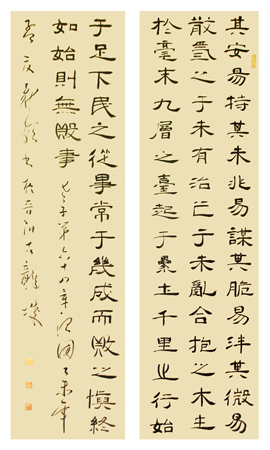 其安易持其未兆易謀其脆易泮其微易
散為之于未有治之于未亂合抱之木生
於毫末九層之臺起于纍土千里之行始
于足下民之從事常于幾成而敗之慎終
如始則無敗事 老子第六十四章